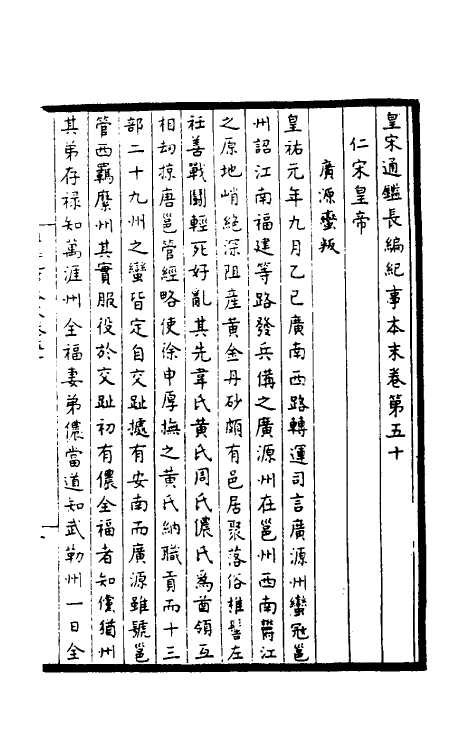 皇宋通鑑長編紀事本末卷第五十
仁宋皇帝
廣源蠻叛
皇祐元年九月乙巳廣南西路轉運司言廣源州蠻冦邕
州詔江南福建等路發兵備之廣源州在邕州西南鬱江
之原地峭絶深阻產黃金丹砂頗有邑居聚落俗椎髻左
衽善戰鬪輕死好亂其先韋氏黃氏周氏儂氏爲酋領互
相刧掠唐邕管經略使徐申厚撫之黃氏納職貢而十三
部二十九州之蠻皆定自交趾據有安南而廣源雖號邕
管西羈縻州其實服役於交趾初有儂全福者知儻猶州
其弟存禄知萬涯州全福妻弟儂當道知武勒州一日全